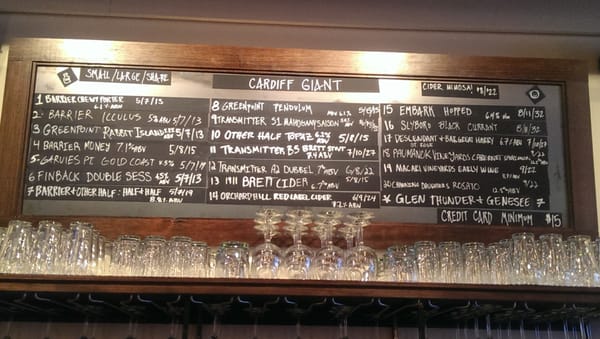 SMALL/LARGE/SHARE
CARDIFF GIANT
CIDER MIMOSA! $8/22
1 BARRIER CREWY PORTER 5/7/15
6.1% ABV
2 BARRIER ICCULUS 5% ABV 5/7/13
3 GREENPOINT RABBIT ISLAND 5/7/13
4 BARRIER MONEY 7.1% ABV 5/8/15
5 GARVIES PT GOLD COAST 5/7/1
6 FINBACK DOUBLE SESS 5/7/13
7 BARRIER + OTHER HALF: HALF+HALF
8.8% ABV
8 GREENPOINT PENDULUM
9 TRANSMITTER S1 MAHOGANY SAISON
10 OTHER HALF TOPAZ 5/8/15
11 TRANSMITTER B5 BRETT STOUT 7/10/27
12 TRANSMITTER A2 DUBBEL 7% ABV 6/8/22
13 1911 BRETT CIDER 6.9% ABV 5/8/15
14 ORCHARD HILL RED LABEL CIDER 6/9/24
8.2% ABV
15 EMBARK HOPPED 6.9% ABV 8/11/32
16 SLYBORO BLACK CURRANT 8/10/32
17 DESCENDANT + BAD SEED HARRY 7/10/27
18 PAUMANOK VINEYARDS CABERNET
19 MACARI VINEYARDS EARLY WINE 9/22
20 CHANNING DAUGHTERS ROSATO 9/22
12.5% ABV
* GLEN THUNDER + GENESEE 7
CREDIT CARD MINIMUM $15